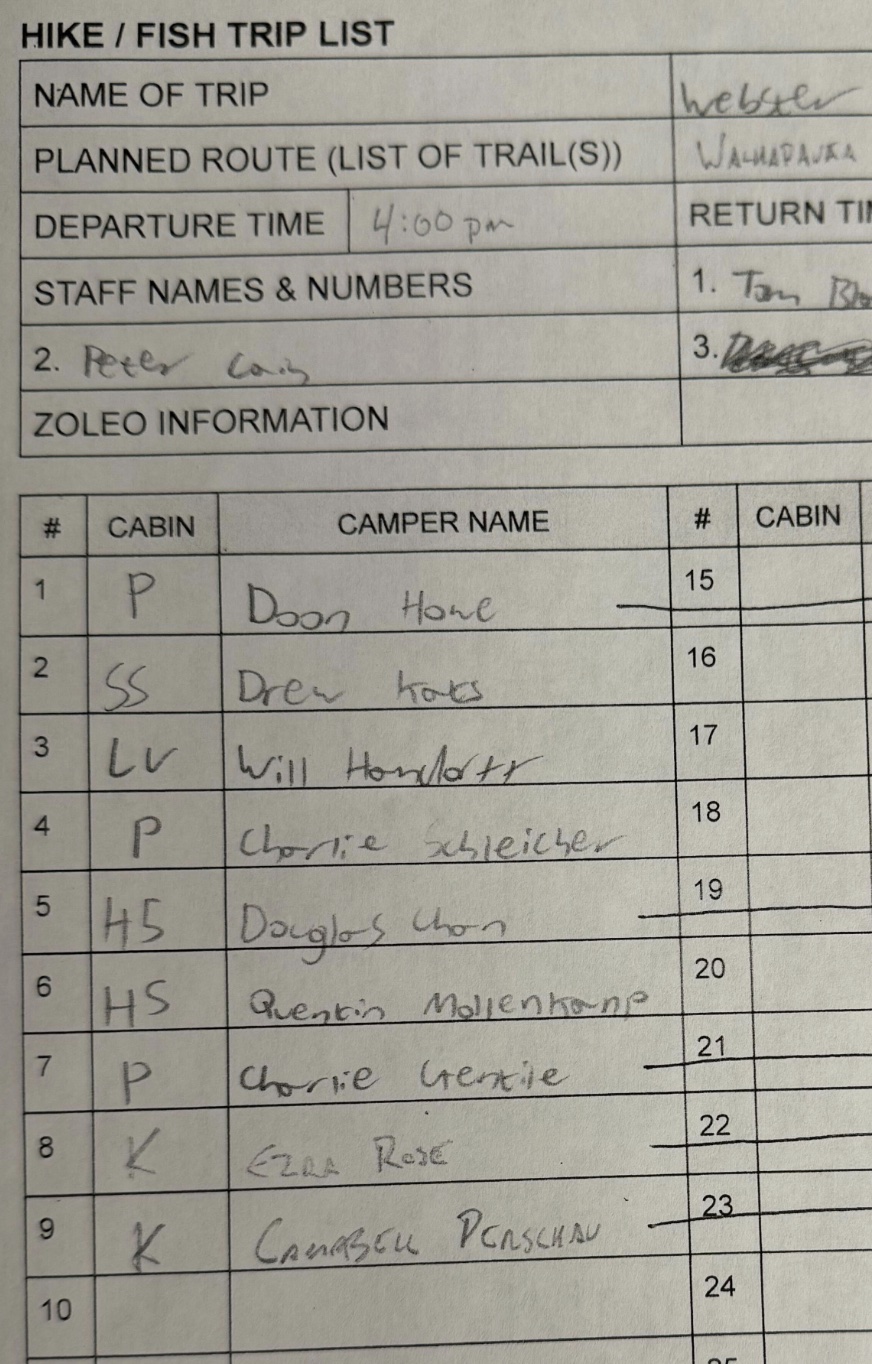 HIKE / FISH TRIP LIST
NAME OF TRIP Webster
PLANNED ROUTE (LIST OF TRAIL(S))
DEPARTURE TIME 4:00 pm RETURN
STAFF NAMES & NUMBERS 1. Tom
2. Peter 3.
ZOLEO INFORMATION
# CABIN CAMPER NAME # CABIN
1 P Doon Howe 15
2 SS Drew 16
3 LV Will 17
4 P Charlie Schleicher 18
5 HS Douglas Chon 19
6 HS Quentin Mollenkamp 20
7 P Charlie Gentile 21
8 K EZRA ROSE 22
9 K PERSCHAU 23
10 24